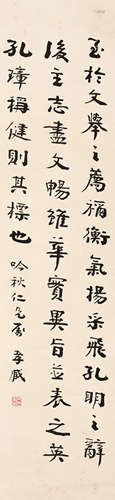 至於文舉之薦禰衡氣揚采飛孔明之辭
後主志盡文暢雖華實異旨並表之英
孔璋稱健則其標也
吟秋仁兄屬